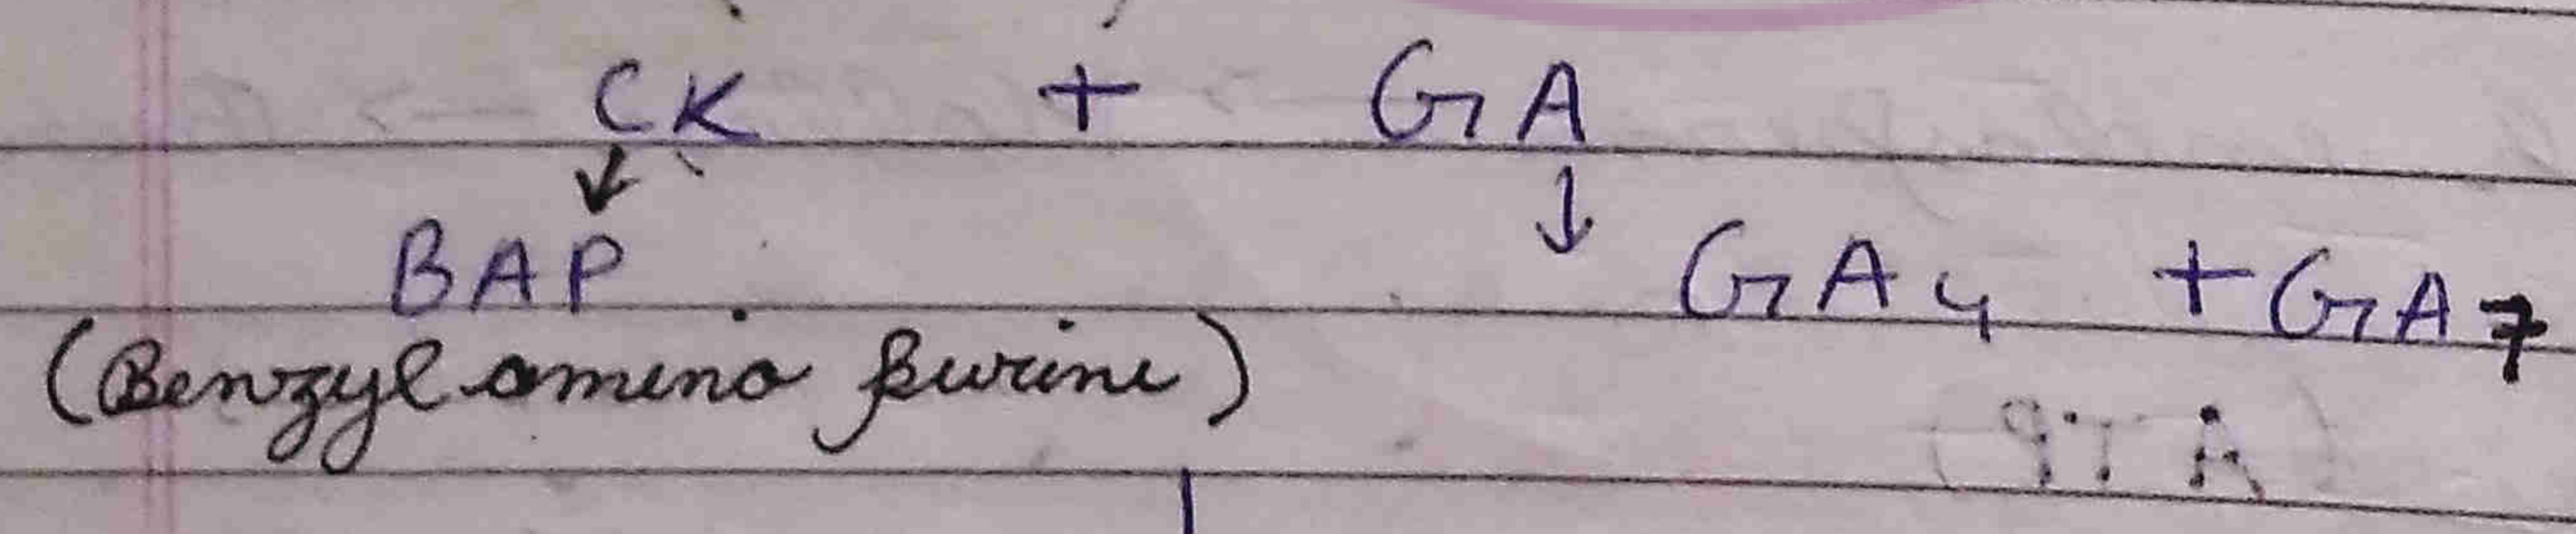 CK + GA
↓ ↓
BAP GA4 + GA7
(Benzyl amino purine)